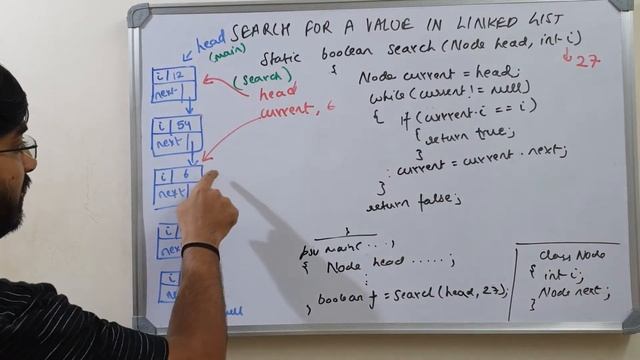 SEARCH FOR A VALUE IN LINKED LIST
head
(main)
static boolean search(Node head, int i)
27
{
(search)
head
current, 6
i 12
next
Node current = head;
while(current != null)
{ if (current.i == i)
{ return true;
}
i 54
next
: current = current.next;
}
return false;
i 6
next
}
psv main(...,
{ Node head .....;
:
boolean f = search(head, 27);
}
i
next
i
null
class Node
{ int i;
Node next;
}